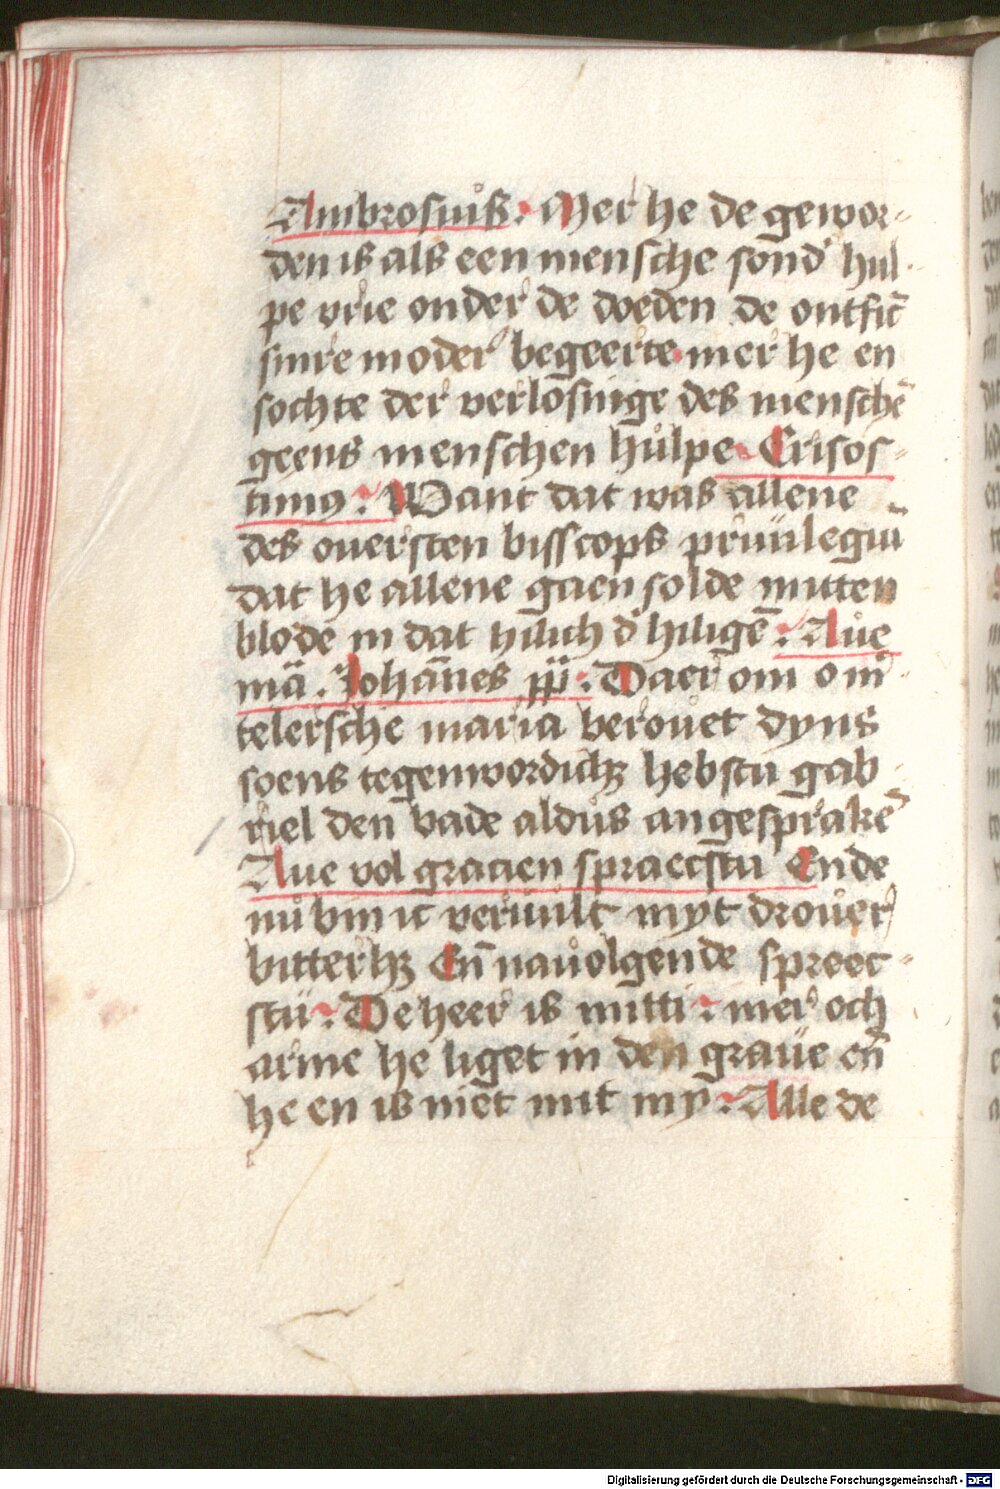 Ambrosiuß. Mer he de gewor-
den is als een mensche sond' hul-
pe vrie onder de doeden de ontfic̄
sinre moder begeerte mer he en
sochte der verlosinge des menschē
geens menschen hůlpe Crisos-
timꝰ. Want dat was allene
des ouersten bisscops priuilegiū
dat he allene gaen solde mitten
blode in dat hilich d' hiligē: Aůe
mā. Johānes pp̄: Daer om o mi-
telersche maria berouet dyns
soens tegenwordichꝫ hebstu gab-
riel den vade aldůs angesprakē
Aue vol gracien spraecstu Ende
nů bin ic veruult myt drouer
bitterhꝫ En̄ nauolgende spreec-
stu: De heer is mitti: mer och
arme he liget in den graůe en̄
he en is niet mit my: Alle de
Digitalisierung gefördert durch die Deutsche Forschungsgemeinschaft - DFG